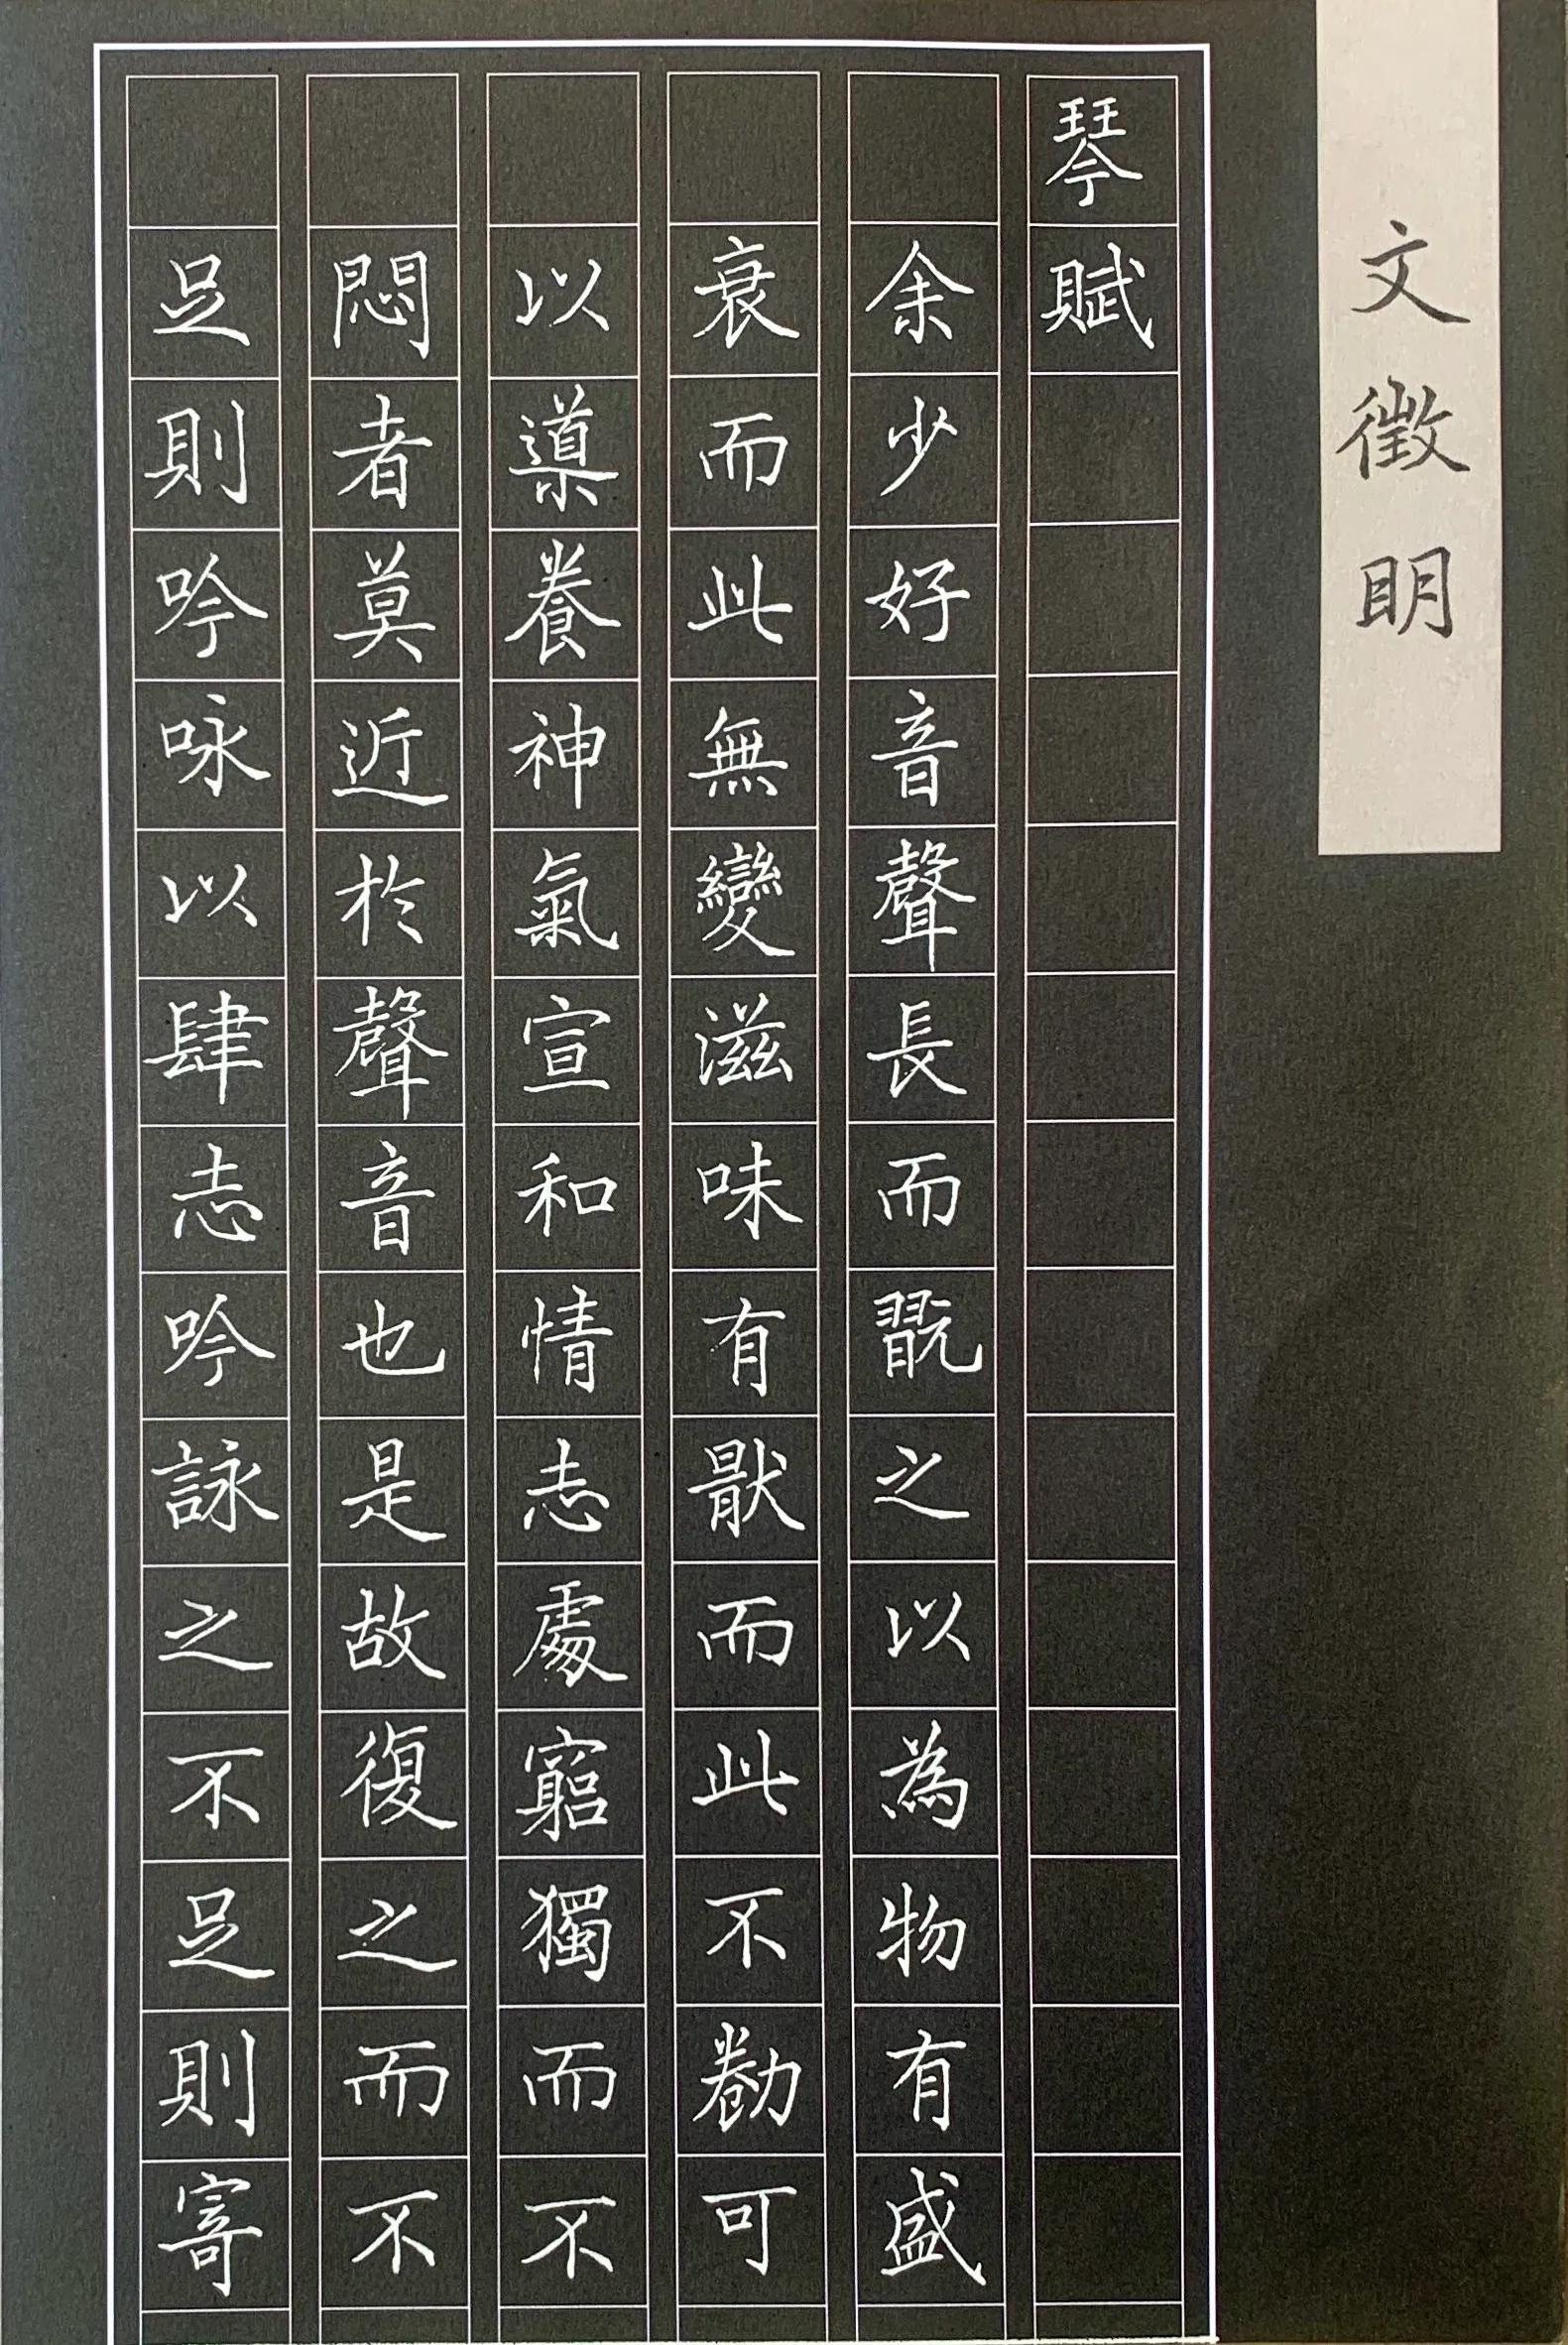 文徵明
琴賦
余少好音聲長而翫之以為物有盛
衰而此無變滋味有猒而此不勌可
以導養神氣宣和情志處窮獨而不
悶者莫近於聲音也是故復之而不
足則吟咏以肆志吟詠之不足則寄